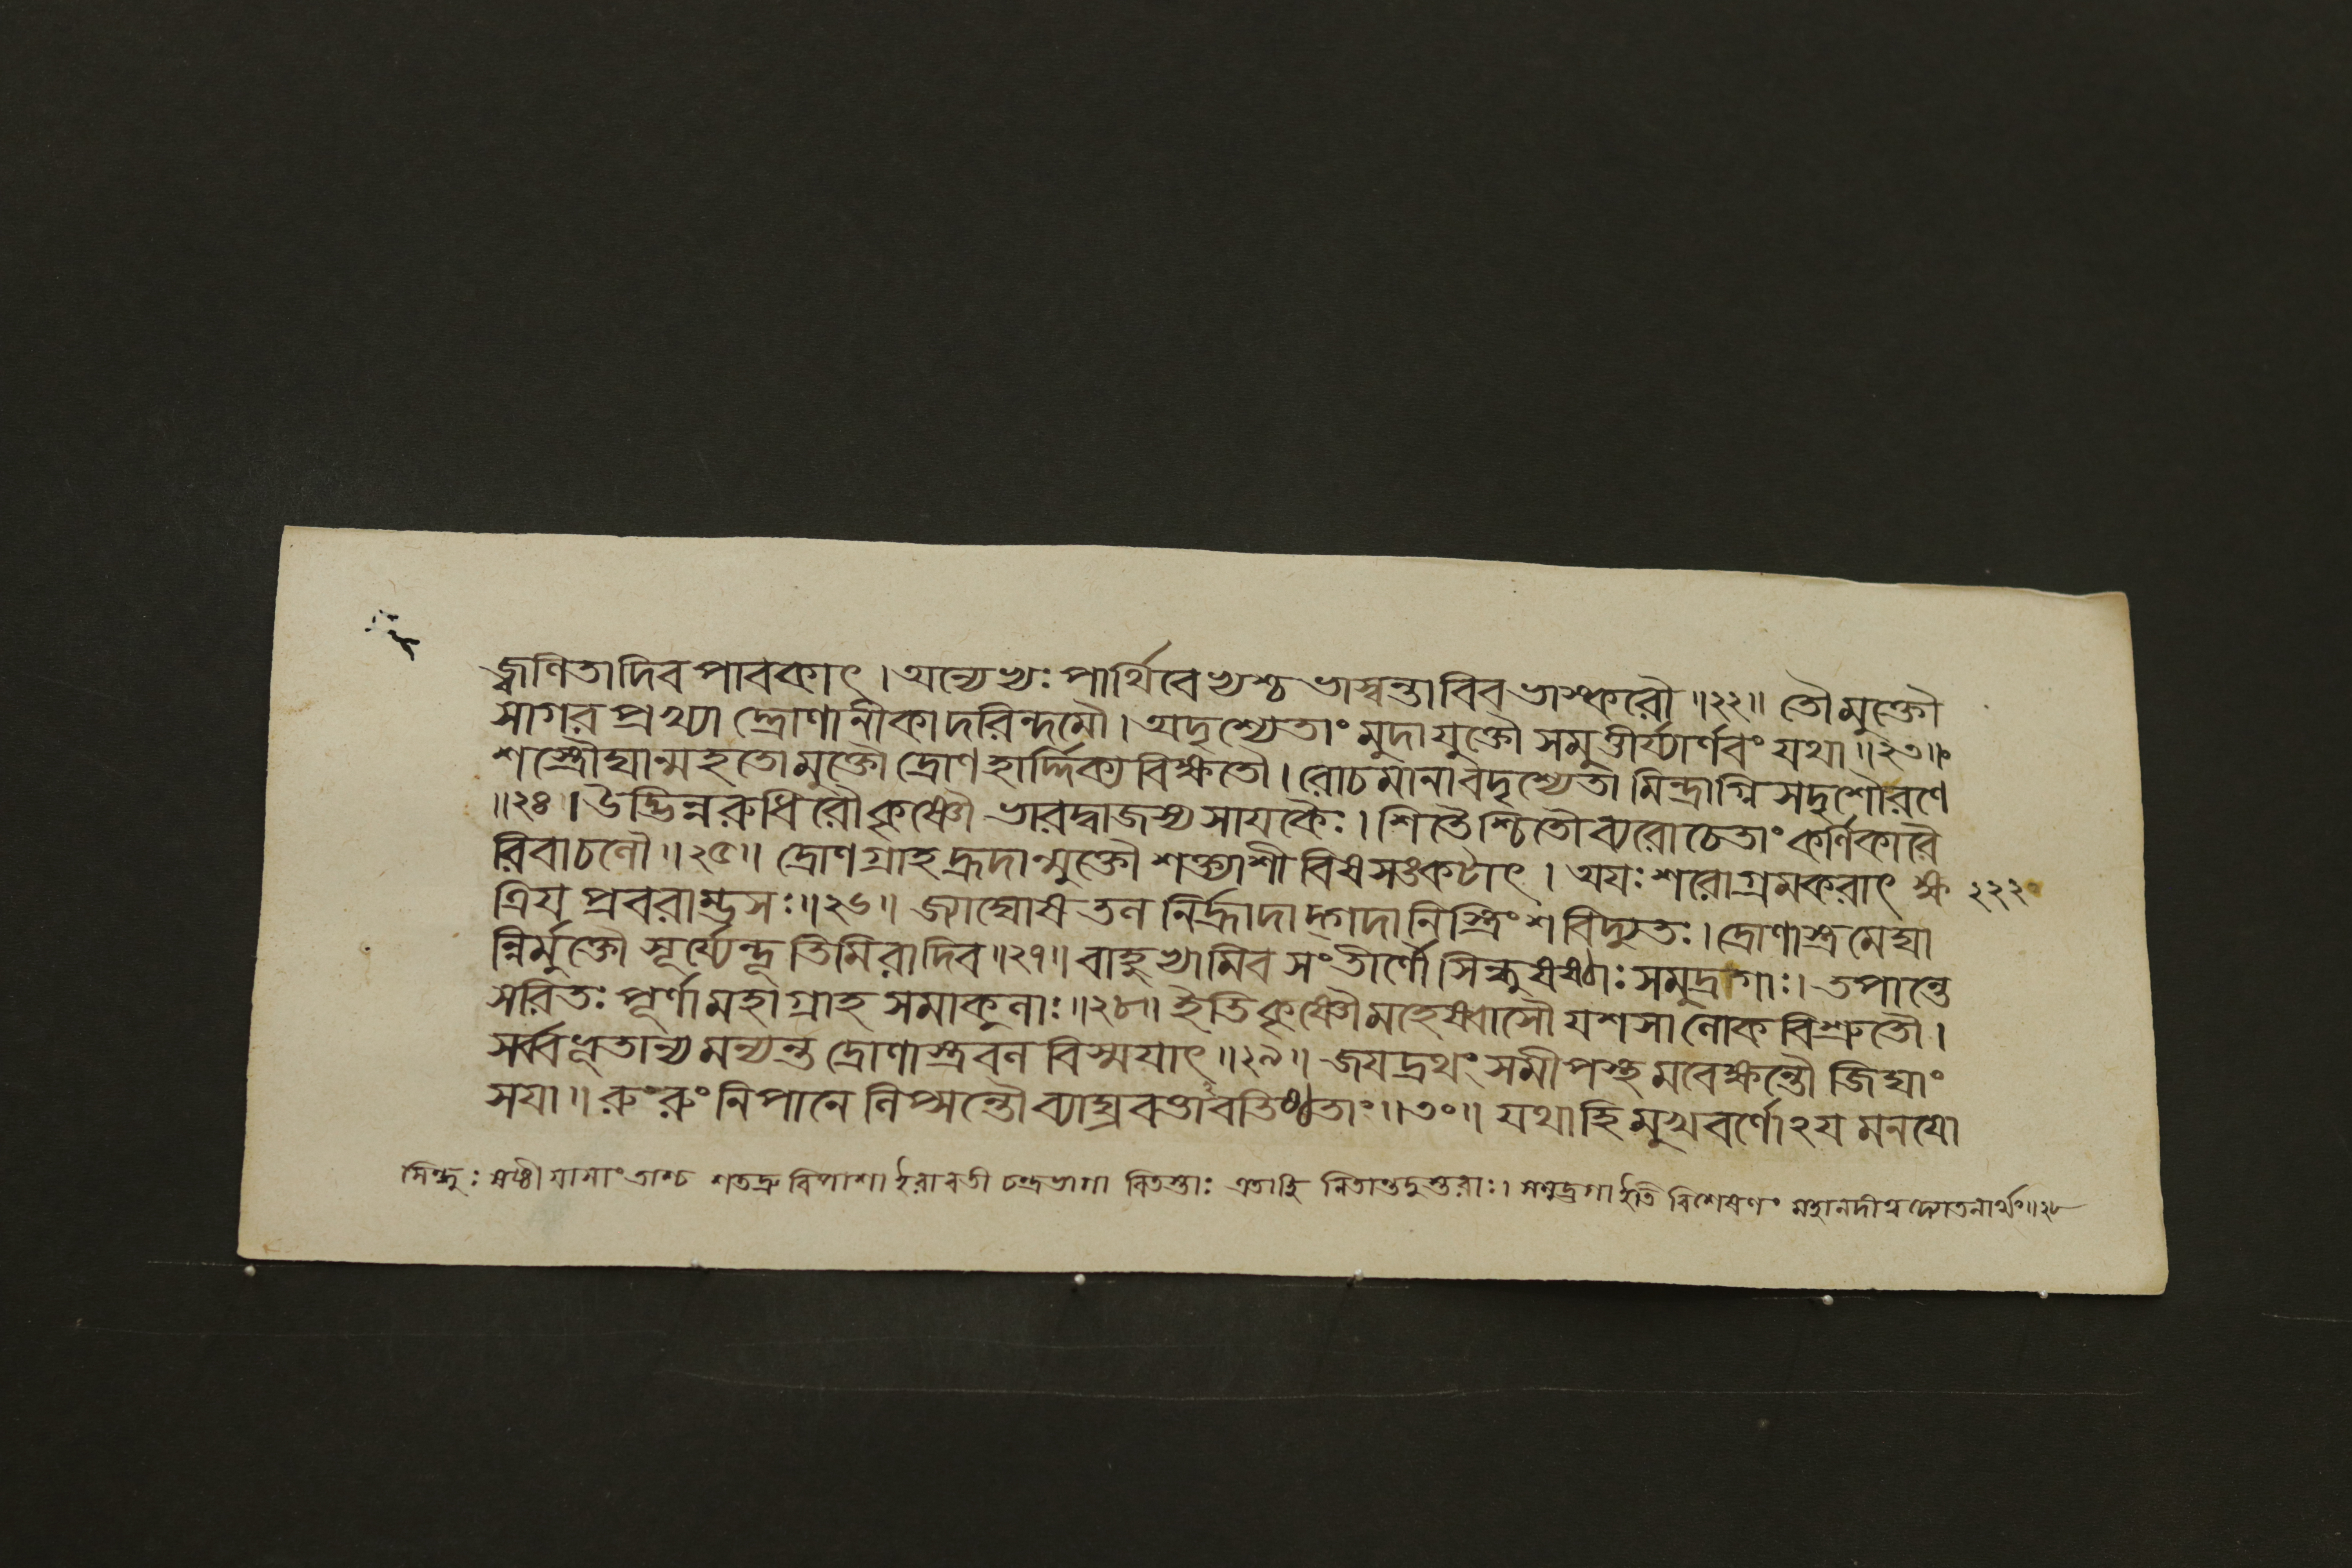 জ্বণিতাদিব পাবকাৎ । অন্যেভ্যঃ পার্থিবেভ্যশ্চ ভাস্বন্তাবিব ভাস্করৌ ॥২২॥ তৌ মুক্তৌ
সাগর প্রখ্যা দ্দ্রোণানীকাদরিন্দমৌ । অদৃশ্যেতাং মুদা যুক্তৌ সমুত্তীর্য্যার্ণবং যথা ॥২৩॥
শস্ত্রৌঘান্মহতো মুক্তৌ দ্রোণ হার্দ্দিক্য বিক্ষতৌ । রোচমানাবদৃশ্যেতা মিন্দ্রাগ্নি সদৃশৌ রণে
॥২৪। উদ্ভিন্ন রুধিরৌ কৃষ্ণৌ ভারদ্বাজস্য সায়কৈঃ । শিতৈশ্চিতৌ ব্যরোচেতাং কর্ণিকারৈ
রিবাচণৌ ॥২৫॥ দ্রোণ গ্রাহ হ্রদান্মুক্তৌ শক্ত্যাশী বিষ সঙ্কটাৎ । অয়ঃ শরোগ্রমকরাৎ ক্ষ ২২২
ত্রিয় প্রবরাম্ভসঃ ॥২৬॥ জ্যাঘোষ তন নির্হ্রাদাদ্গদানিস্ত্রিংশ বিদ্যুতঃ । দ্রোণাস্ত্র মেঘা
ন্নির্মুক্তৌ সূর্য্যেন্দূ তিমিরাদিব ॥২৭॥ বাহুভ্যামিব সংতীর্ণৌ সিন্ধুষষ্ঠাঃ সমুদ্রগাঃ । তপান্তে
সরিতঃ পূর্ণা মহাগ্রাহ সমাকুণাঃ ॥২৮॥ ইতি কৃষ্ণৌ মহেষ্বাসৌ যশসা ণোক বিশ্রুতৌ ।
সর্ব্বভূতান্য মন্যন্ত দ্রোণাস্ত্রবণ বিস্ময়াৎ ॥২৯॥ জয়দ্রথং সমীপস্থ মবেক্ষন্তৌ জিঘাং
সয়া ॥ রুংরুং নিপানে ণিপ্সন্তৌ ব্যাঘ্রবত্তাবতিষ্ঠতাং ॥৩০॥ যথাহি মুখবর্ণোঽয় মনয়ো
সিন্ধুঃ ষষ্ঠী যাসাং তাশ্চ শতদ্রু বিপাশা ইরাবতী চন্দ্রভাগা বিতস্তাঃ এতাহি নিতান্তদুস্তরাঃ । সমুদ্রগা ইতি বিশেষণং মহানদীত্ব দ্যোতনার্থং ॥২৮